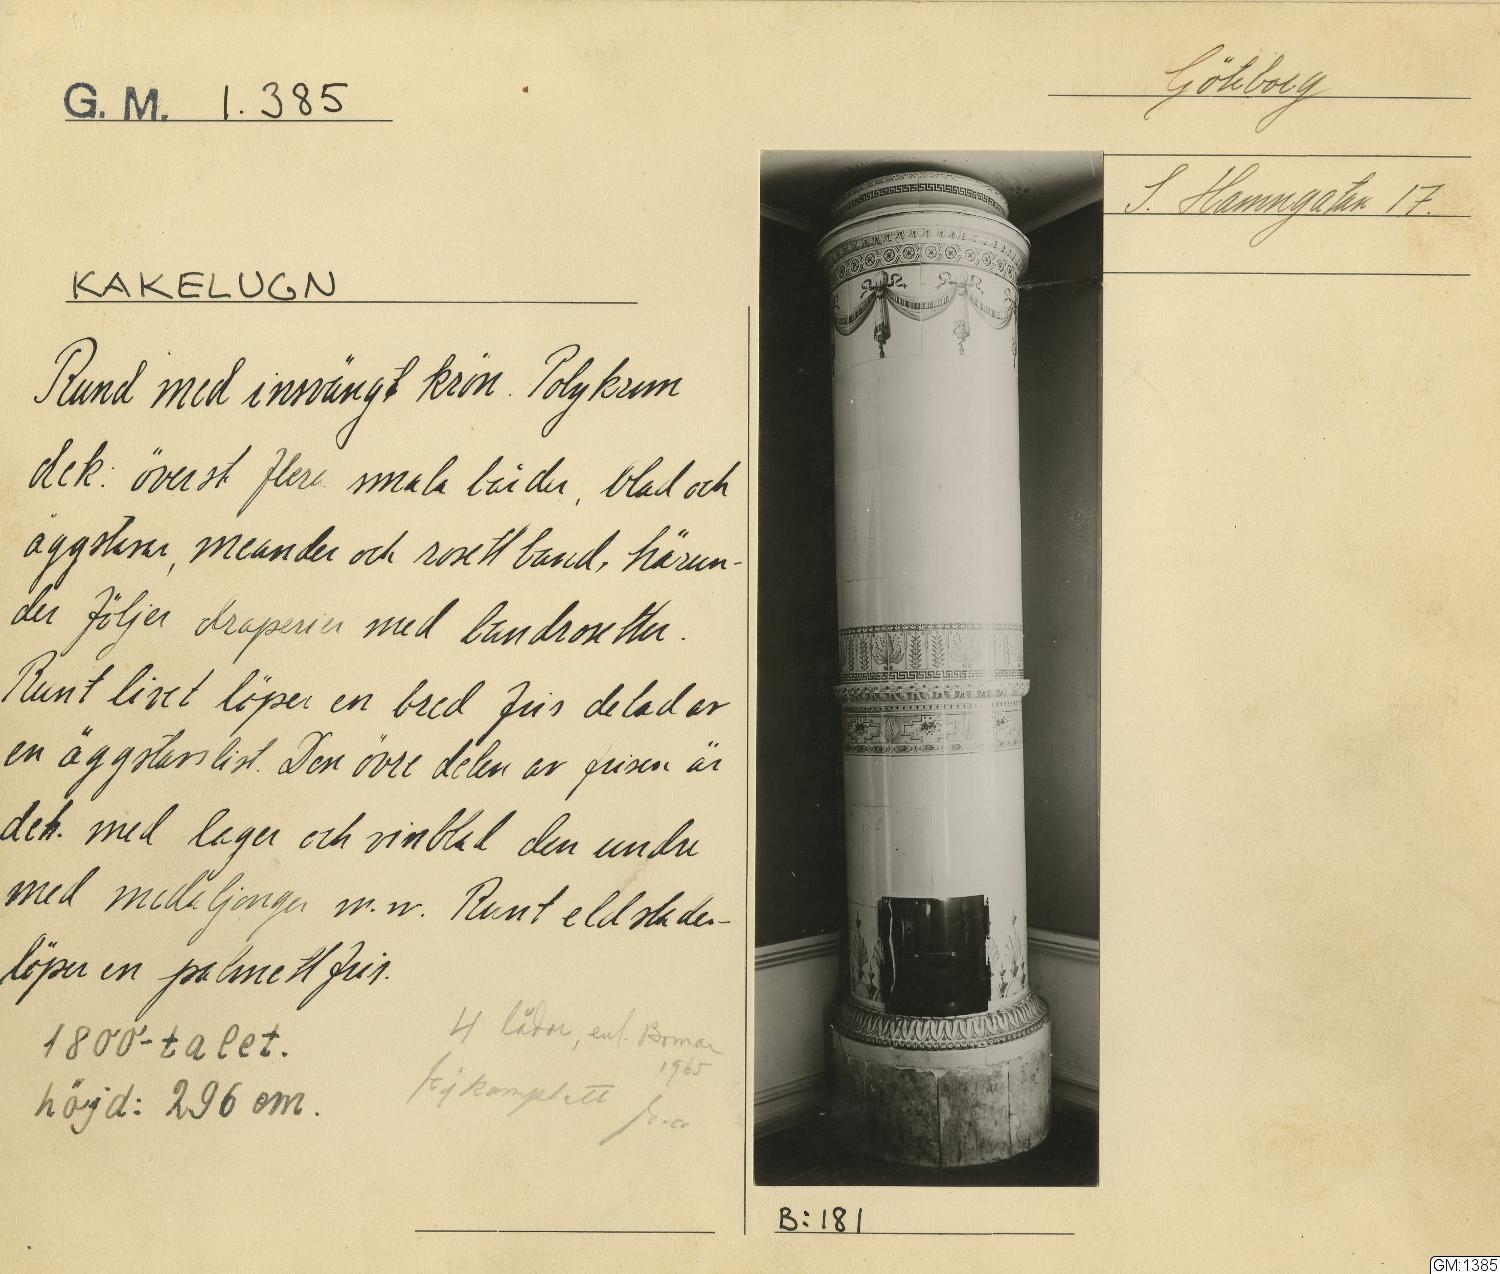 G. M. 1.385
Göteborg
S. Hamngatan 17.
KAKELUGN
Rund med insvängt krön. Polykrom
dek: överst flera smala bårder, blad och
äggstavar, meander och rosettband, härun-
der följer draperier med bandrosetter.
Runt livet löper en bred fris delad av
en äggstavslist. Den övre delen av frisen är
dek. med lager och vinblad den undre
med medaljonger m.m. Runt eldstaden
löper en palmettfris.
1800-talet.
höjd: 296 cm.
4 lådor, enl. Boman
1965
Ej komplett
B:181
GM:1385